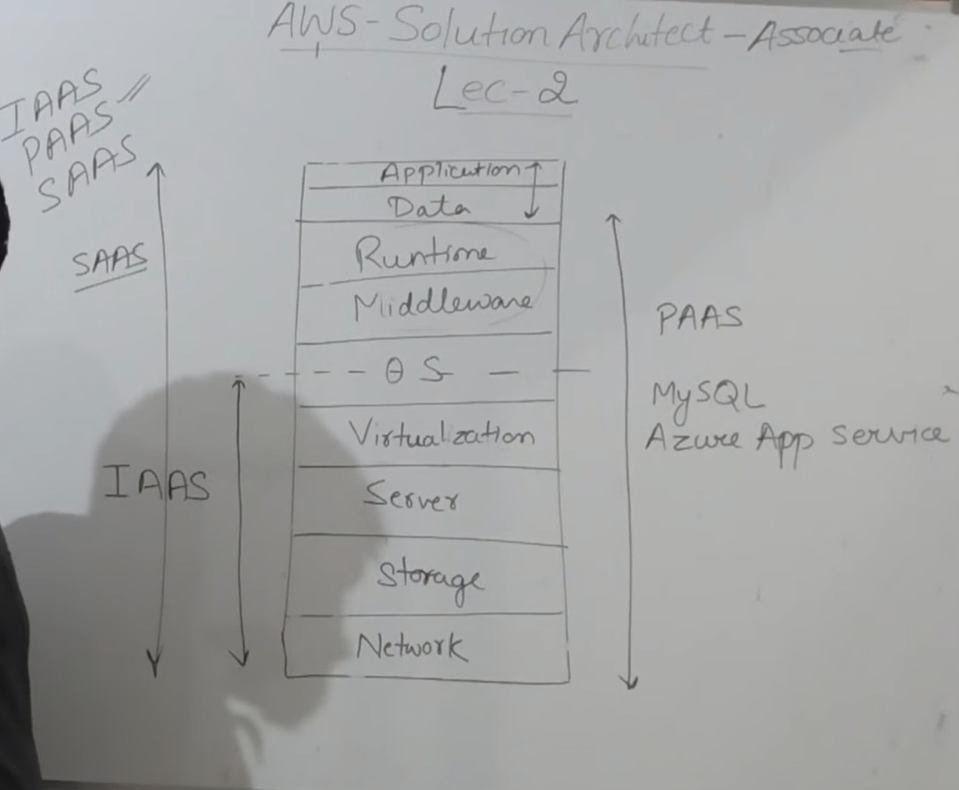 AWS-Solution Architect-Associate
Lec-2
IAAS
PAAS
SAAS
SAAS
IAAS
Application
Data
Runtime
Middleware
OS
Virtualization
Server
Storage
Network
PAAS
MySQL
Azure App Service